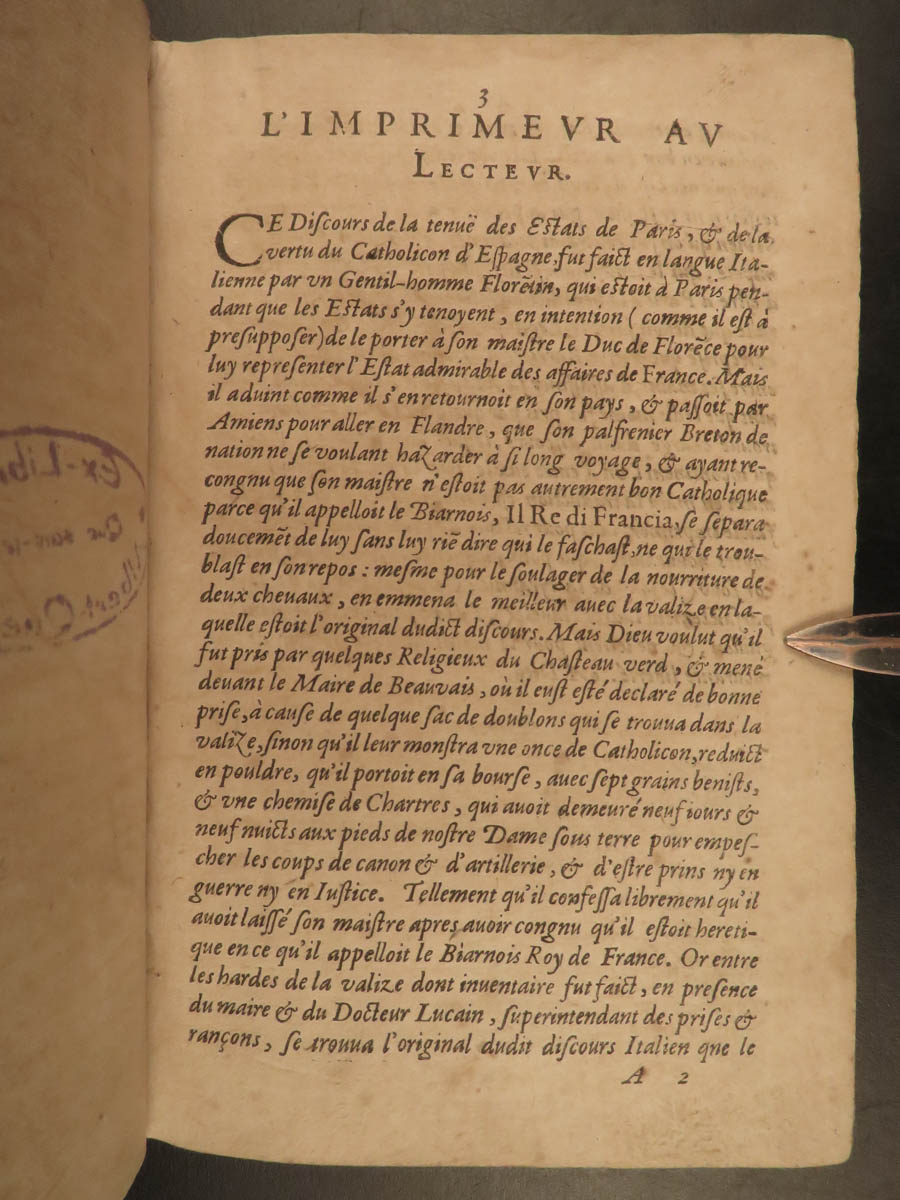 3
L'IMPRIMEVR AV
LECTEVR.
CE Diſcours de la tenuë des Eſtats de Paris, & de la
vertu du Catholicon d'Eſpagne, fut faict en langue Ita-
lienne par vn Gentil-homme Florẽtin, qui eſtoit à Paris pen-
dant que les Eſtats s'y tenoyent, en intention (comme il eſt à
preſuppoſer) de le porter à ſon maiſtre le Duc de Florẽce pour
luy repreſenter l'Eſtat admirable des affaires de France. Mais
il aduint comme il s'en retournoit en ſon pays, & paſſoit par
Amiens pour aller en Flandre, que ſon palfrenier Breton de
nation ne ſe voulant hazarder à ſi long voyage, & ayant re-
congnu que ſon maiſtre n'eſtoit pas autrement bon Catholique
parce qu'il appelloit le Biarnois, Il Re di Francia, ſe ſepara
doucemẽt de luy ſans luy riẽ dire qui le faſchaſt, ne qui le trou-
blaſt en ſon repos : meſme pour le ſoulager de la nourriture de
deux cheuaux, en emmena le meilleur auec la valize en la-
quelle eſtoit l'original dudict diſcours. Mais Dieu voulut qu'il
fut pris par quelques Religieux du Chaſteau verd, & mené
deuant le Maire de Beauvais, où il euſt eſté declaré de bonne
priſe, à cauſe de quelque ſac de doublons qui ſe trouua dans la
valize, ſinon qu'il leur monſtra vne once de Catholicon, reduict
en pouldre, qu'il portoit en ſa bourſe, auec ſept grains beniſts,
& vne chemiſe de Chartres, qui auoit demeuré neuf iours &
neuf nuicts aux pieds de noſtre Dame ſous terre pour empeſ-
cher les coups de canon & d'artillerie, & d'eſtre prins ny en
guerre ny en Iuſtice. Tellement qu'il confeſſa librement qu'il
auoit laiſſé ſon maiſtre apres auoir congnu qu'il eſtoit hereti-
que en ce qu'il appelloit le Biarnois Roy de France. Or entre
les hardes de la valize dont inuentaire fut faict, en preſence
du maire & du Docteur Lucain, ſuperintendant des priſes &
rançons, ſe trouua l'original dudit diſcours Italien qne le
A 2
Ex-Lib